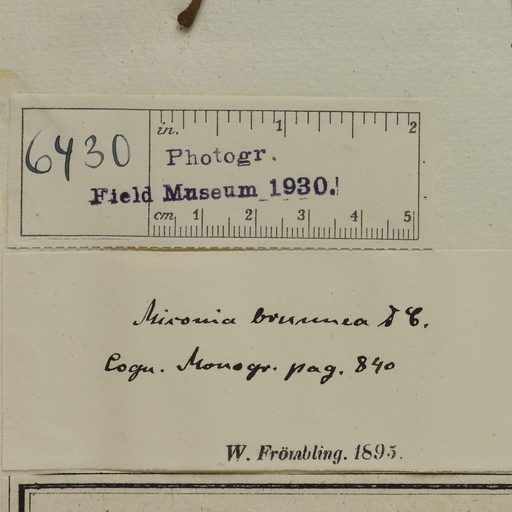 6430
in. 1 2
Photogr.
Field Museum 1930.
cm 1 2 3 4 5
Miconia brunnea DC.
Cogn. Monogr. pag. 840
W. Frömbling. 1895.